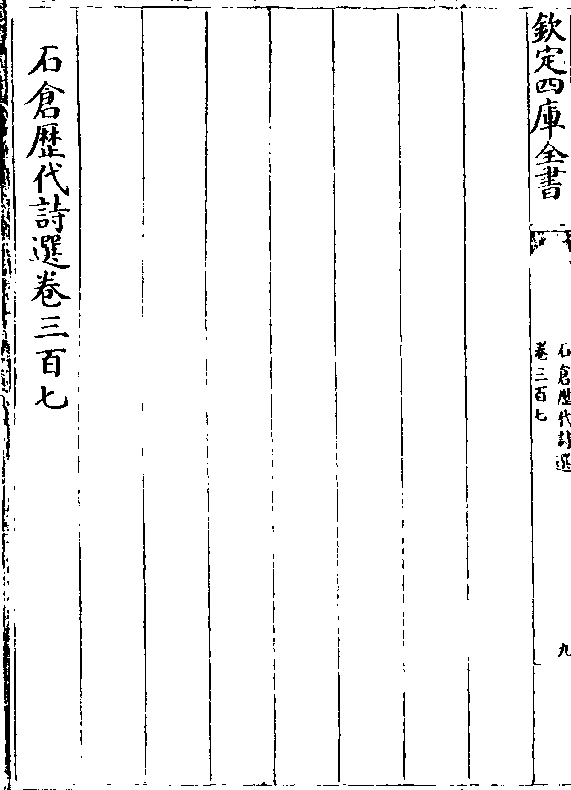 欽定四庫全書
石倉歴代詩選
卷三百七
九
石倉歴代詩選卷三百七